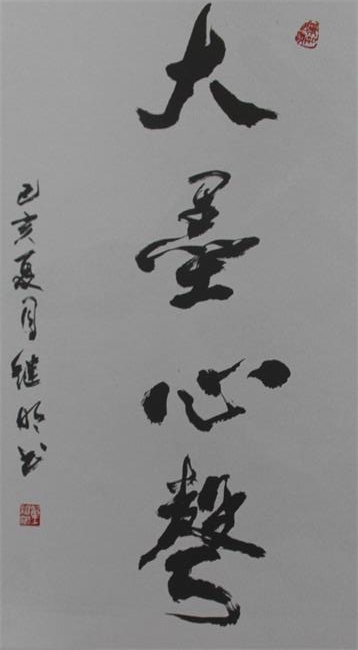 大墨心聲
己亥夏月继明书